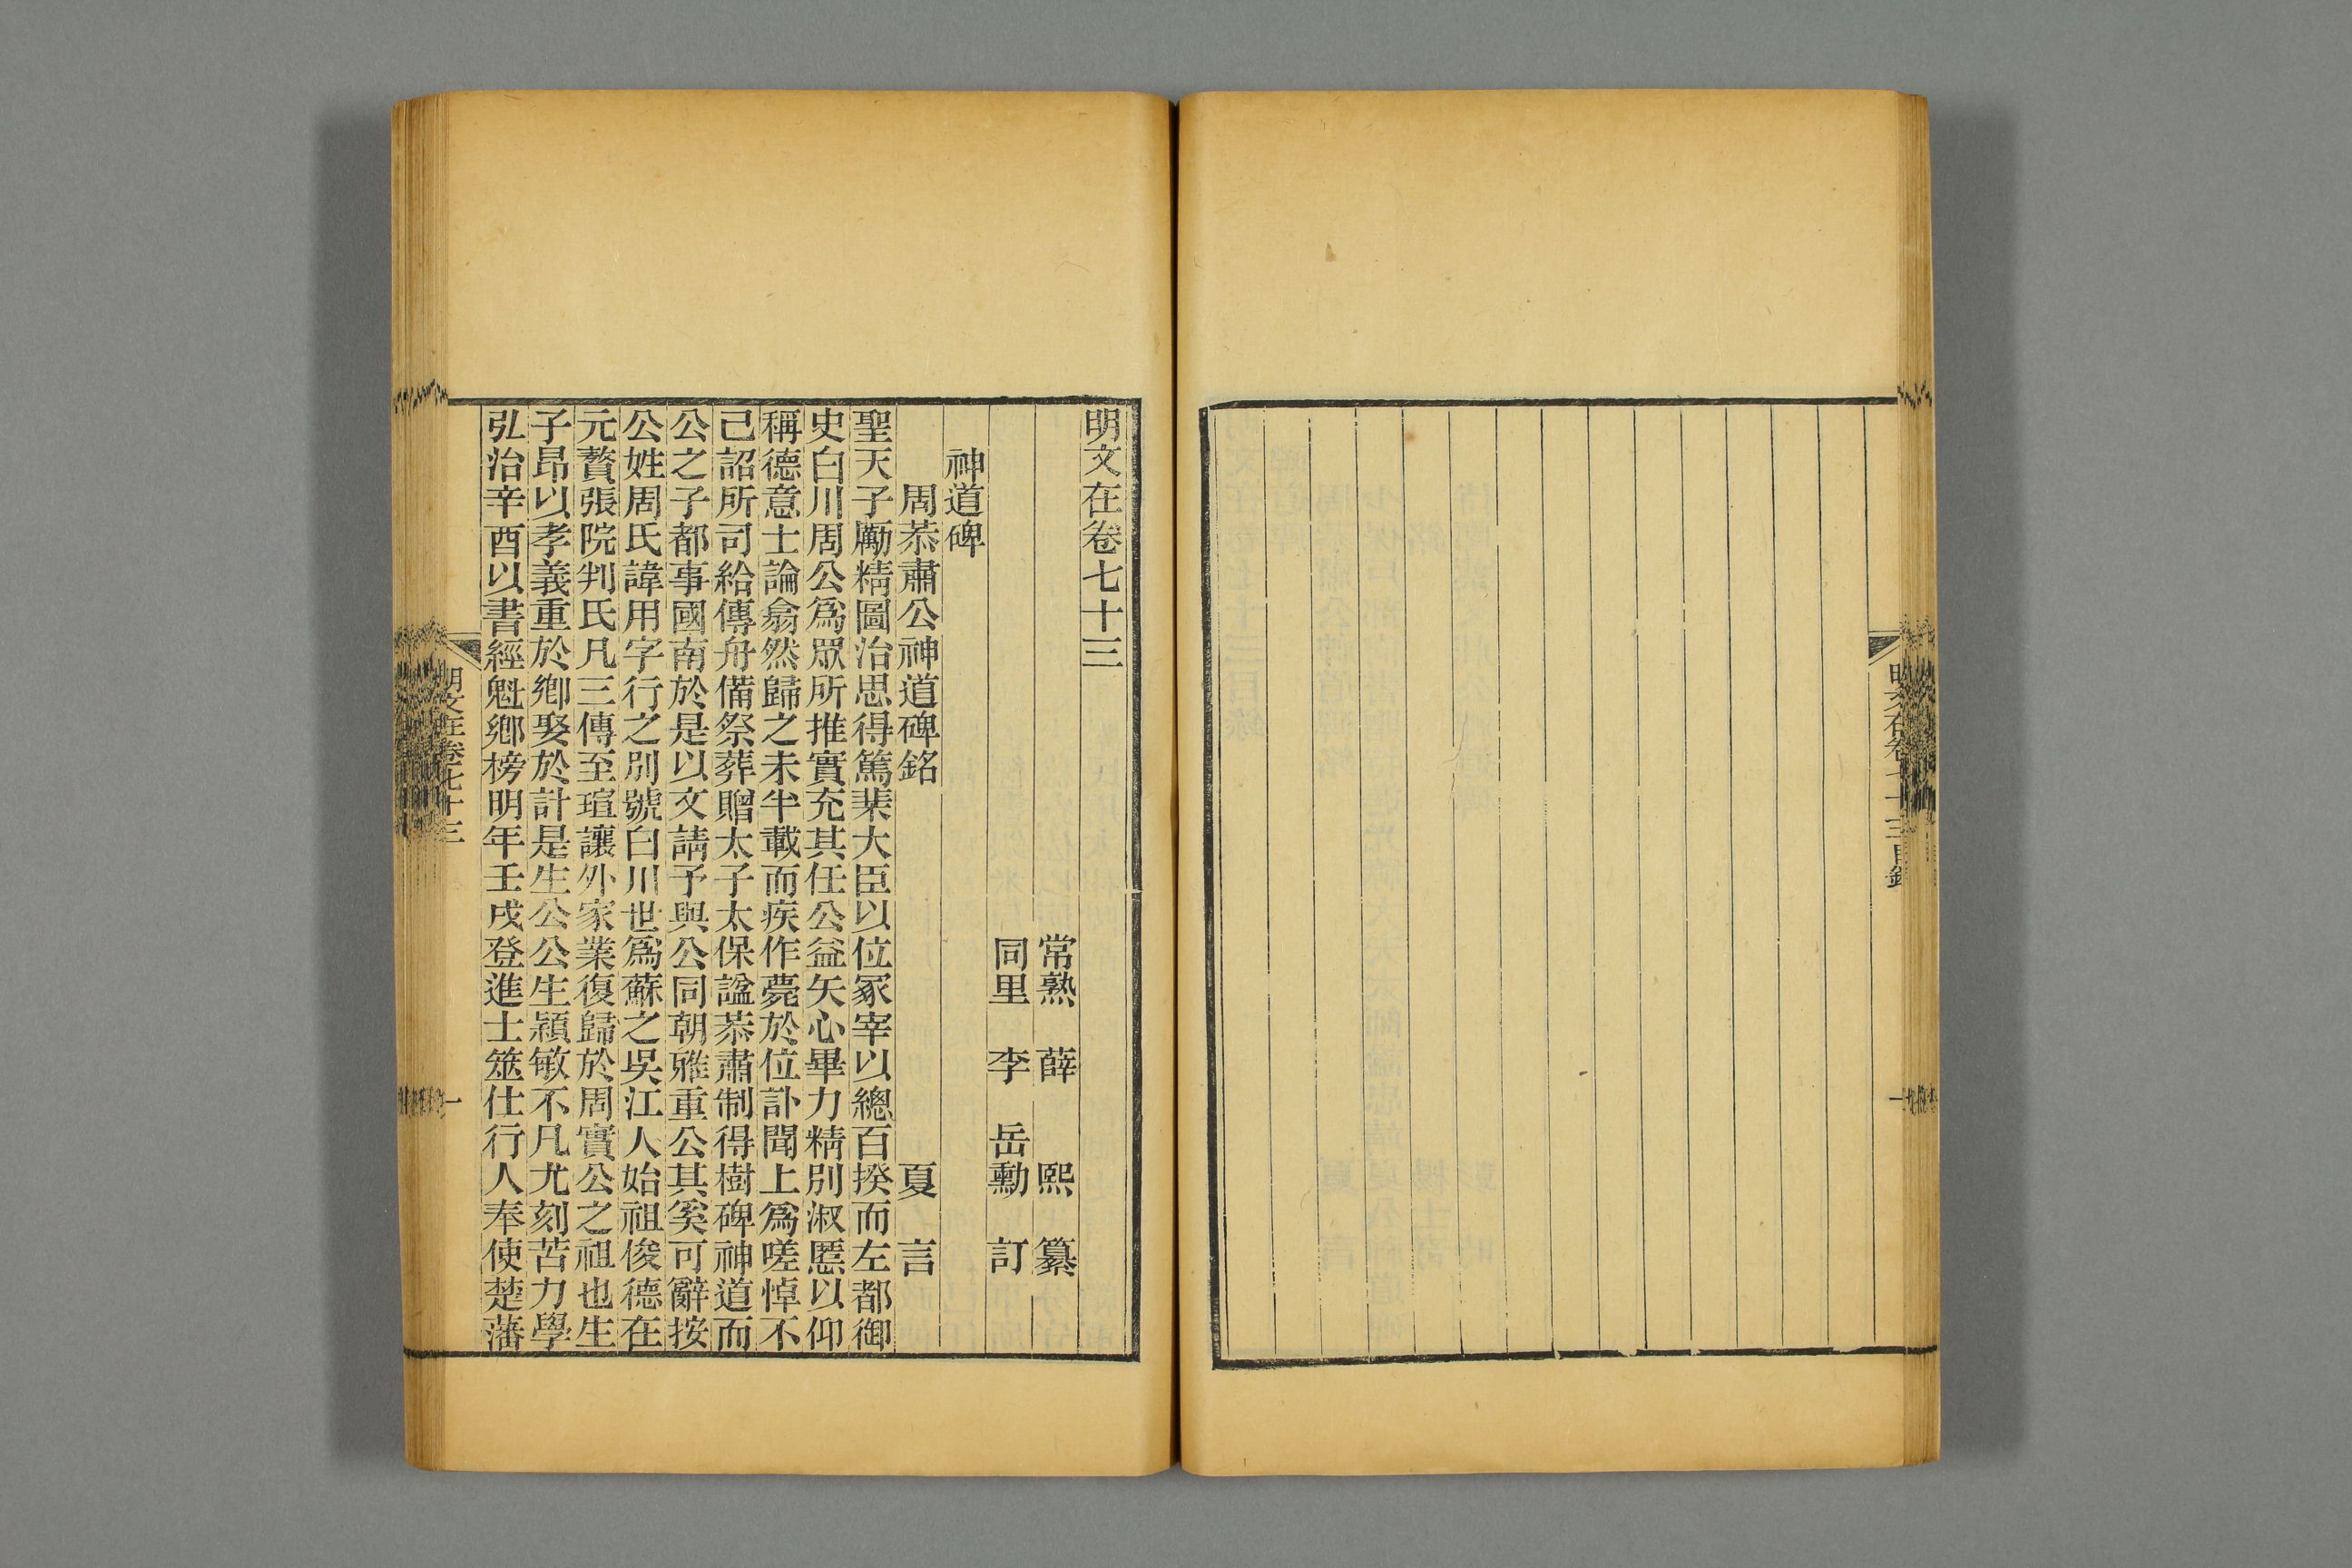 明文在卷七十三目錄
一
明文在卷七十三
常熟 薛 熙 纂
同里 李 岳勳 訂
神道碑
周恭肅公神道碑銘 夏 言
聖天子勵精圖治思得篤棐大臣以位冢宰以總百揆而左都御
史白川周公爲眾所推實充其任公益矢心畢力精別淑慝以仰
稱德意士論翕然歸之未半載而疾作薨於位訃聞上爲嗟悼不
己詔所司給傳舟備祭葬贈太子太保諡恭肅制得樹碑神道而
公之子都事國南於是以文請予與公同朝雅重公其奚可辭按
公姓周氏諱用字行之別號白川世爲蘇之吳江人始祖俊德在
元贅張院判氏凡三傳至瑄讓外家業復歸於周實公之祖也生
子昂以孝義重於鄕娶於計是生公公生穎敏不凡尤刻苦力學
弘治辛酉以書經魁鄕榜明年壬戌登進士筮仕行人奉使楚藩
明文在卷七十三
一